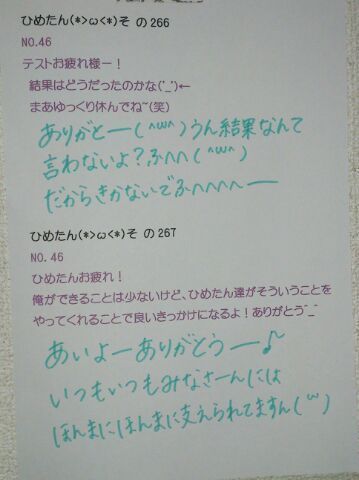 ひめたん(*>ω<*)そ の266
NO.46
テストお疲れ様ー!
結果はどうだったのかな('_')←
まあゆっくり休んでね~(笑)
ありがとー(^ω^)うん結果なんて
言わないよ?ふへへ(^ω^)
だからきかないでふへへへへー
ひめたん(*>ω<*)そ の267
NO.46
ひめたんお疲れ!
俺ができることは少ないけど、ひめたん達がそういうことを
やってくれることで良いきっかけになるよ!ありがとう^_^
あいよーありがとうー♪
いつもいつもみなさーんには
ほんまにほんまに支えられてますん(^ω^)